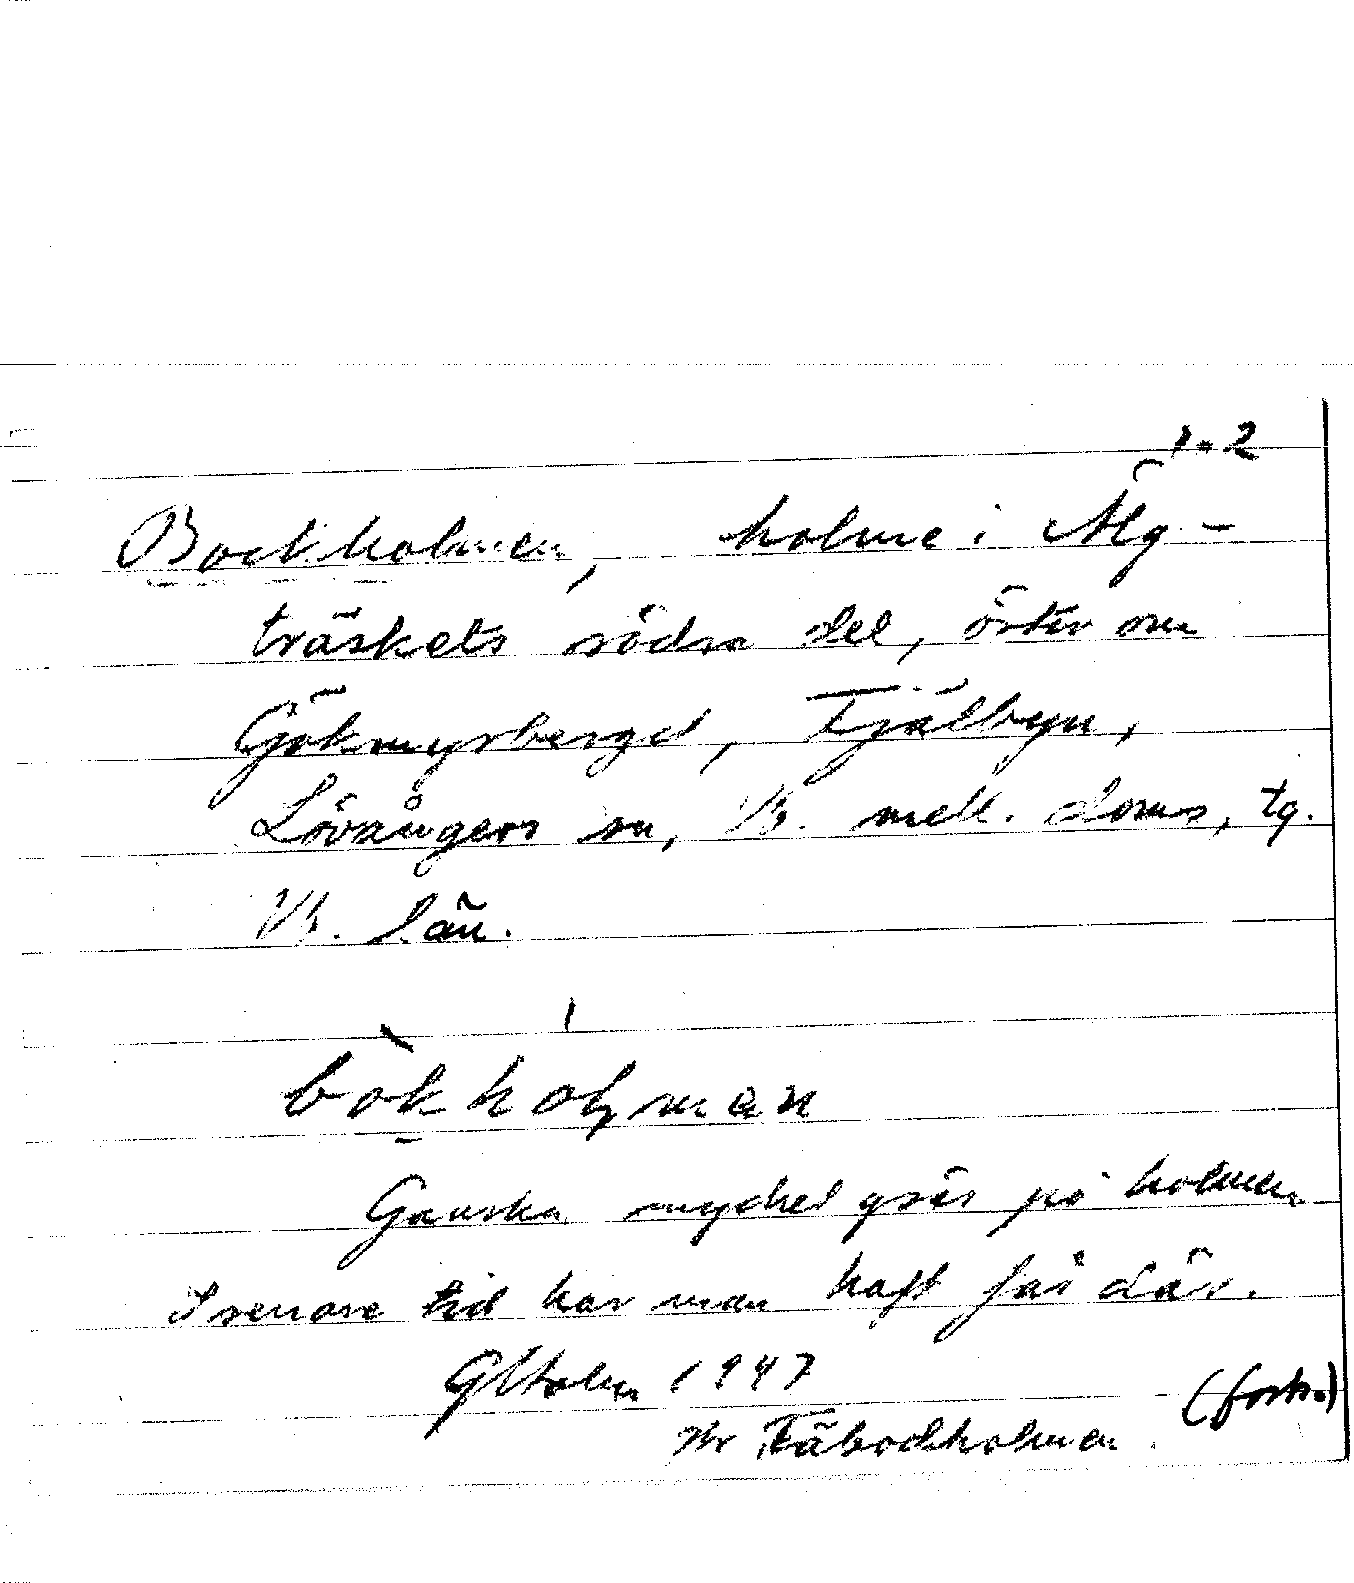 1-2
Bockholmen, holme i Älg-
träskets södra del, öster om
Gökmyrberget, Fjälbyn,
Lövångers sn, Vb. mell. doms, tg.
Vb. län.
bòkholman
Ganska mycket gräs på holmen
I senare tid har man haft får där.
GHolm 1947
Fäbodholmen
(forts.)